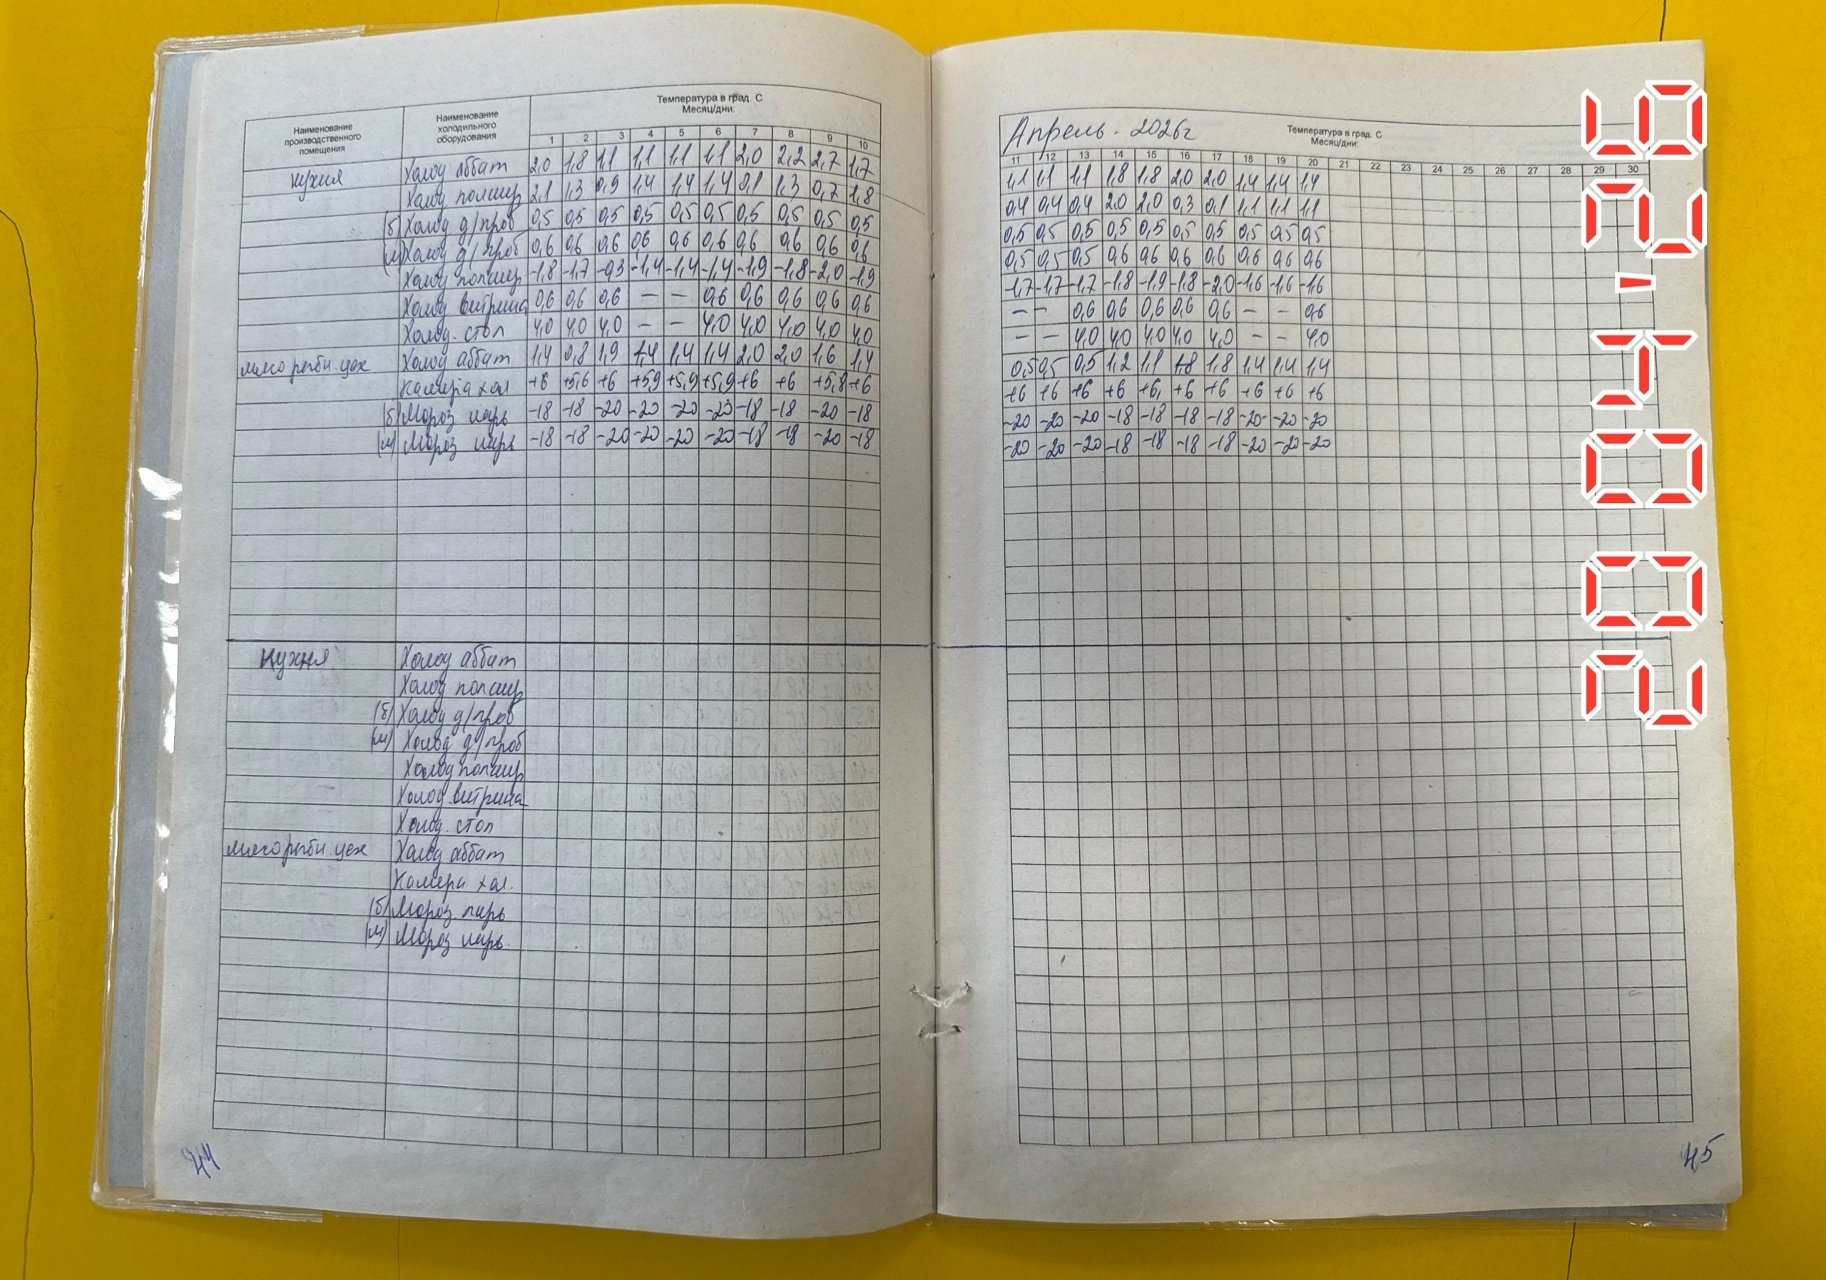 Наименование производственного помещения
Наименование холодильного оборудования
Температура в град. С
Месяц/дни:
1 2 3 4 5 6 7 8 9 10
кухня Холод аббат 2,0 1,8 1,1 1,1 1,1 1,1 2,0 2,2 2,7 1,7
Холод полаир 2,1 1,3 0,9 1,4 1,4 1,4 0,1 1,3 0,7 1,8
(б) Холод д/проб 0,5 0,5 0,5 0,5 0,5 0,5 0,5 0,5 0,5 0,5
(м) Холод д/проб 0,6 0,6 0,6 0,6 0,6 0,6 0,6 0,6 0,6 0,6
Холод полаир -1,8 -1,7 -0,3 -1,4 -1,4 -1,4 -1,9 -1,8 -2,0 -1,9
Холод витрина 0,6 0,6 0,6 — — 0,6 0,6 0,6 0,6 0,6
Холод. стол 4,0 4,0 4,0 — — 4,0 4,0 4,0 4,0 4,0
мясо рыбн. цех Холод аббат 1,4 0,8 1,9 1,4 1,4 1,4 2,0 2,0 1,6 1,4
Камера хол +6 +5,6 +6 +5,9 +5,9 +5,9 +6 +6 +5,8 +6
(б) Мороз ларь -18 -18 -20 -20 -20 -20 -18 -18 -20 -18
(м) Мороз ларь -18 -18 -20 -20 -20 -20 -18 -18 -20 -18
кухня Холод аббат
Холод полаир
(б) Холод д/проб
(м) Холод д/проб
Холод полаир
Холод витрина
Холод. стол
мясо рыбн. цех Холод аббат
Камера хол.
(б) Мороз. ларь
(м) Мороз ларь.
44
Апрель - 2026г
Температура в град. С
Месяц/дни:
11 12 13 14 15 16 17 18 19 20 21 22 23 24 25 26 27 28 29 30
1,1 1,1 1,1 1,8 1,8 2,0 2,0 1,4 1,4 1,4
0,4 0,4 0,4 2,0 2,0 0,3 0,1 1,1 1,1 1,1
0,5 0,5 0,5 0,5 0,5 0,5 0,5 0,5 0,5 0,5
0,5 0,5 0,5 0,6 0,6 0,6 0,6 0,6 0,6 0,6
-1,7 -1,7 -1,7 -1,8 -1,9 -1,8 -2,0 -1,6 -1,6 -1,6
— — 0,6 0,6 0,6 0,6 0,6 — — 0,6
— — 4,0 4,0 4,0 4,0 4,0 — — 4,0
0,5 0,5 0,5 1,2 1,1 1,8 1,8 1,4 1,4 1,4
+6 +6 +6 +6 +6, +6 +6 +6 +6 +6
-20 -20 -20 -18 -18 -18 -18 -20 -20 -20
-20 -20 -20 -18 -18 -18 -18 -20 -20 -20
45